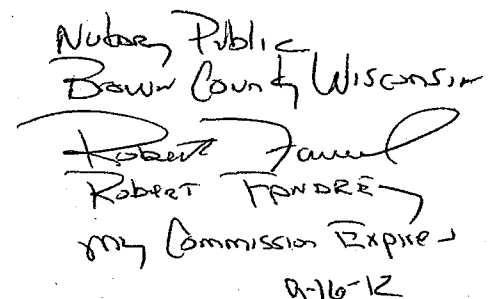 Notary Public
Brown County Wisconsin
Robert
Robert FANDRÉ
my Commission Expires
9-16-12